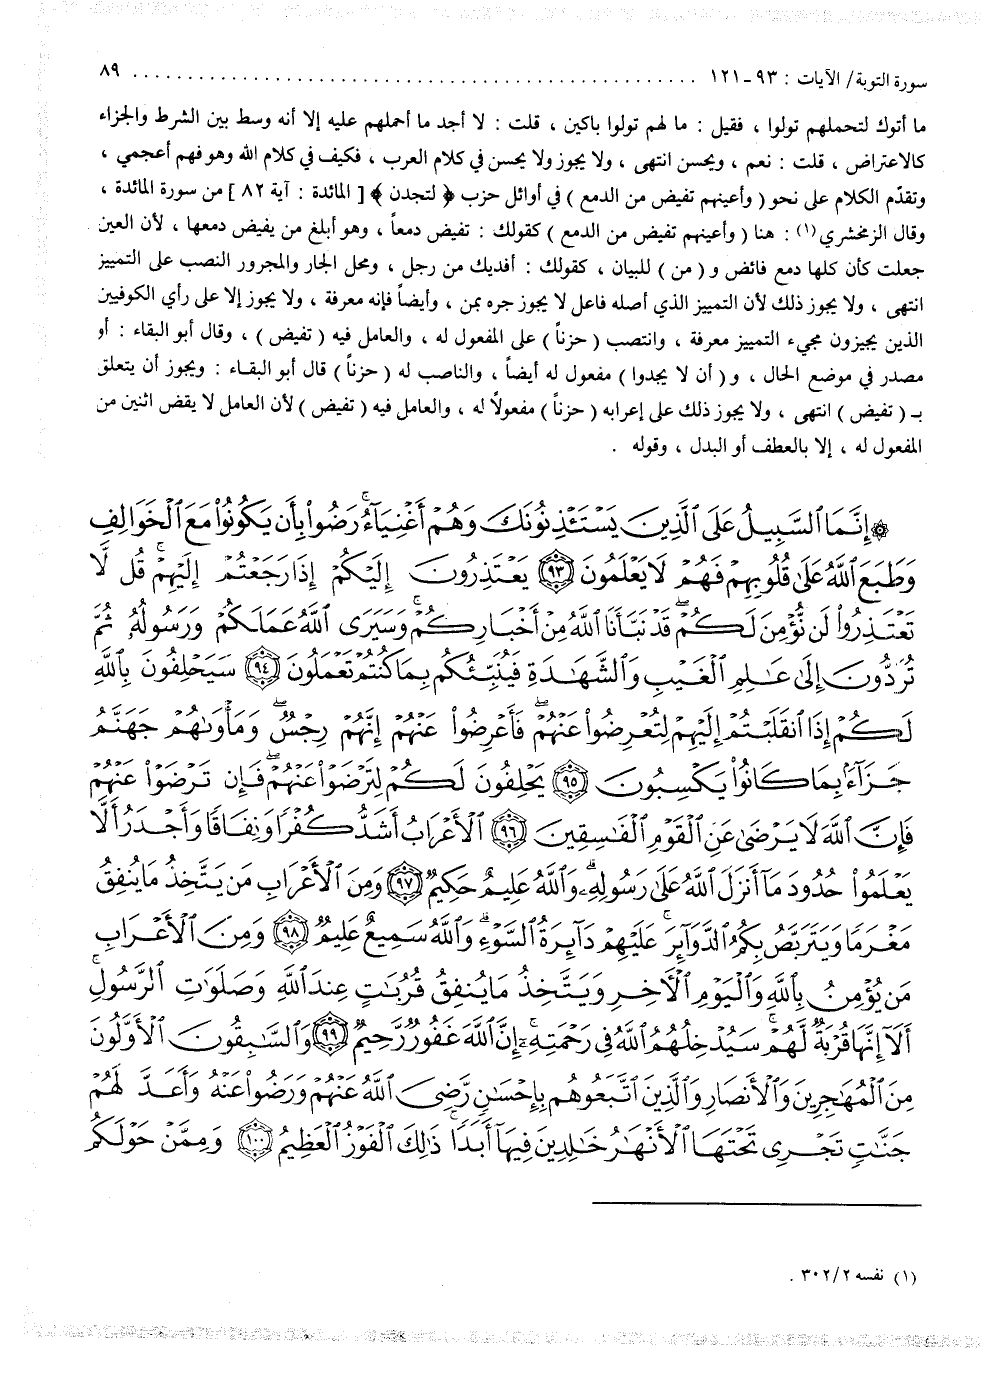 سورة التوبة/ الآيات : ٩٣ -١٢١ ............................................................ ٨٩
ما أتوك لتحملهم تولوا ، فقيل : ما لهم تولوا باكين ، قلت : لا أجد ما أحملهم عليه إلا أنه وسط بين الشرط والجزاء
كالاعتراض ، قلت : نعم ، ويحسن انتهى ، ولا يجوز ولا يحسن في كلام العرب ، فكيف في كلام الله وهو فهم أعجمي ،
وتقدّم الكلام على نحو ( وأعينهم تفيض من الدمع ) في أوائل حزب ﴿ لتجدن ﴾ [ المائدة : آية ٨٢ ] من سورة المائدة ،
وقال الزمخشري (١) : هنا ( وأعينهم تفيض من الدمع ) كقولك : تفيض دمعاً ، وهو أبلغ من يفيض دمعها ، لأن العين
جعلت كأن كلها دمع فائض و ( من ) للبيان ، كقولك : أفديك من رجل ، ومحل الجار والمجرور النصب على التمييز
انتهى ، ولا يجوز ذلك لأن التمييز الذي أصله فاعل لا يجوز جره بمن ، وأيضاً فإنه معرفة ، ولا يجوز إلا على رأي الكوفيين
الذين يجيزون مجيء التمييز معرفة ، وانتصب ( حزناً ) على المفعول له ، والعامل فيه ( تفيض ) ، وقال أبو البقاء : أو
مصدر في موضع الحال ، و ( أن لا يجدوا ) مفعول له أيضاً ، والناصب له ( حزناً ) قال أبو البقاء : ويجوز أن يتعلق
بـ ( تفيض ) انتهى ، ولا يجوز ذلك على إعرابه ( حزناً ) مفعولاً له ، والعامل فيه ( تفيض ) لأن العامل لا يقض اثنين من
المفعول له ، إلا بالعطف أو البدل ، وقوله .
۞ إِنَّمَا ٱلسَّبِيلُ عَلَى ٱلَّذِينَ يَسْتَـْٔذِنُونَكَ وَهُمْ أَغْنِيَآءُ ۚ رَضُوا۟ بِأَن يَكُونُوا۟ مَعَ ٱلْخَوَالِفِ
وَطَبَعَ ٱللَّهُ عَلَىٰ قُلُوبِهِمْ فَهُمْ لَا يَعْلَمُونَ ﴿٩٣﴾ يَعْتَذِرُونَ إِلَيْكُمْ إِذَا رَجَعْتُمْ إِلَيْهِمْ ۚ قُل لَّا
تَعْتَذِرُوا۟ لَن نُّؤْمِنَ لَكُمْ ۖ قَدْ نَبَّأَنَا ٱللَّهُ مِنْ أَخْبَارِكُمْ ۚ وَسَيَرَى ٱللَّهُ عَمَلَكُمْ وَرَسُولُهُۥ ثُمَّ
تُرَدُّونَ إِلَىٰ عَـٰلِمِ ٱلْغَيْبِ وَٱلشَّهَـٰدَةِ فَيُنَبِّئُكُم بِمَا كُنتُمْ تَعْمَلُونَ ﴿٩٤﴾ سَيَحْلِفُونَ بِٱللَّهِ
لَكُمْ إِذَا ٱنقَلَبْتُمْ إِلَيْهِمْ لِتُعْرِضُوا۟ عَنْهُمْ ۖ فَأَعْرِضُوا۟ عَنْهُمْ إِنَّهُمْ رِجْسٌ ۖ وَمَأْوَىٰهُمْ جَهَنَّمُ
جَزَآءًۢ بِمَا كَانُوا۟ يَكْسِبُونَ ﴿٩٥﴾ يَحْلِفُونَ لَكُمْ لِتَرْضَوْا۟ عَنْهُمْ ۖ فَإِن تَرْضَوْا۟ عَنْهُمْ
فَإِنَّ ٱللَّهَ لَا يَرْضَىٰ عَنِ ٱلْقَوْمِ ٱلْفَـٰسِقِينَ ﴿٩٦﴾ ٱلْأَعْرَابُ أَشَدُّ كُفْرًا وَنِفَاقًا وَأَجْدَرُ أَلَّا
يَعْلَمُوا۟ حُدُودَ مَآ أَنزَلَ ٱللَّهُ عَلَىٰ رَسُولِهِۦ ۗ وَٱللَّهُ عَلِيمٌ حَكِيمٌ ﴿٩٧﴾ وَمِنَ ٱلْأَعْرَابِ مَن يَتَّخِذُ مَا يُنفِقُ
مَغْرَمًا وَيَتَرَبَّصُ بِكُمُ ٱلدَّوَآئِرَ ۚ عَلَيْهِمْ دَآئِرَةُ ٱلسَّوْءِ ۗ وَٱللَّهُ سَمِيعٌ عَلِيمٌ ﴿٩٨﴾ وَمِنَ ٱلْأَعْرَابِ
مَن يُؤْمِنُ بِٱللَّهِ وَٱلْيَوْمِ ٱلْـَٔاخِرِ وَيَتَّخِذُ مَا يُنفِقُ قُرُبَـٰتٍ عِندَ ٱللَّهِ وَصَلَوَٰتِ ٱلرَّسُولِ ۚ
أَلَآ إِنَّهَا قُرْبَةٌ لَّهُمْ ۚ سَيُدْخِلُهُمُ ٱللَّهُ فِى رَحْمَتِهِۦٓ ۗ إِنَّ ٱللَّهَ غَفُورٌ رَّحِيمٌ ﴿٩٩﴾ وَٱلسَّـٰبِقُونَ ٱلْأَوَّلُونَ
مِنَ ٱلْمُهَـٰجِرِينَ وَٱلْأَنصَارِ وَٱلَّذِينَ ٱتَّبَعُوهُم بِإِحْسَـٰنٍ رَّضِىَ ٱللَّهُ عَنْهُمْ وَرَضُوا۟ عَنْهُ وَأَعَدَّ لَهُمْ
جَنَّـٰتٍ تَجْرِى تَحْتَهَا ٱلْأَنْهَـٰرُ خَـٰلِدِينَ فِيهَآ أَبَدًا ۚ ذَٰلِكَ ٱلْفَوْزُ ٱلْعَظِيمُ ﴿١٠٠﴾ وَمِمَّنْ حَوْلَكُم
(١) نفسه ٣٠٢/٢ .